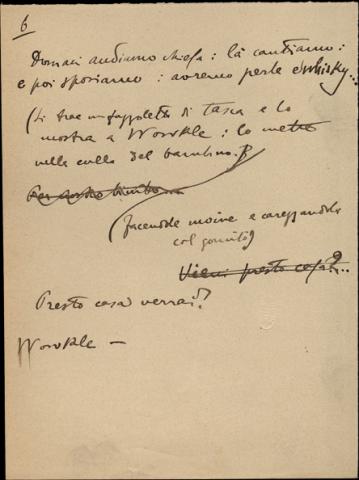 6
Domani andiamo chiesa: là cantiamo:
e poi sposiamo: avremo perle e whisky...
(Si trae un fazzoletto di tasca e lo
mostra a Wowkle: lo mette
nella culla del bambino.
Per nostro bimbo...
(facendole moine e carezzandola
col gomito)
Vieni presto casa?...
Presto casa verrai?
Wowkle —